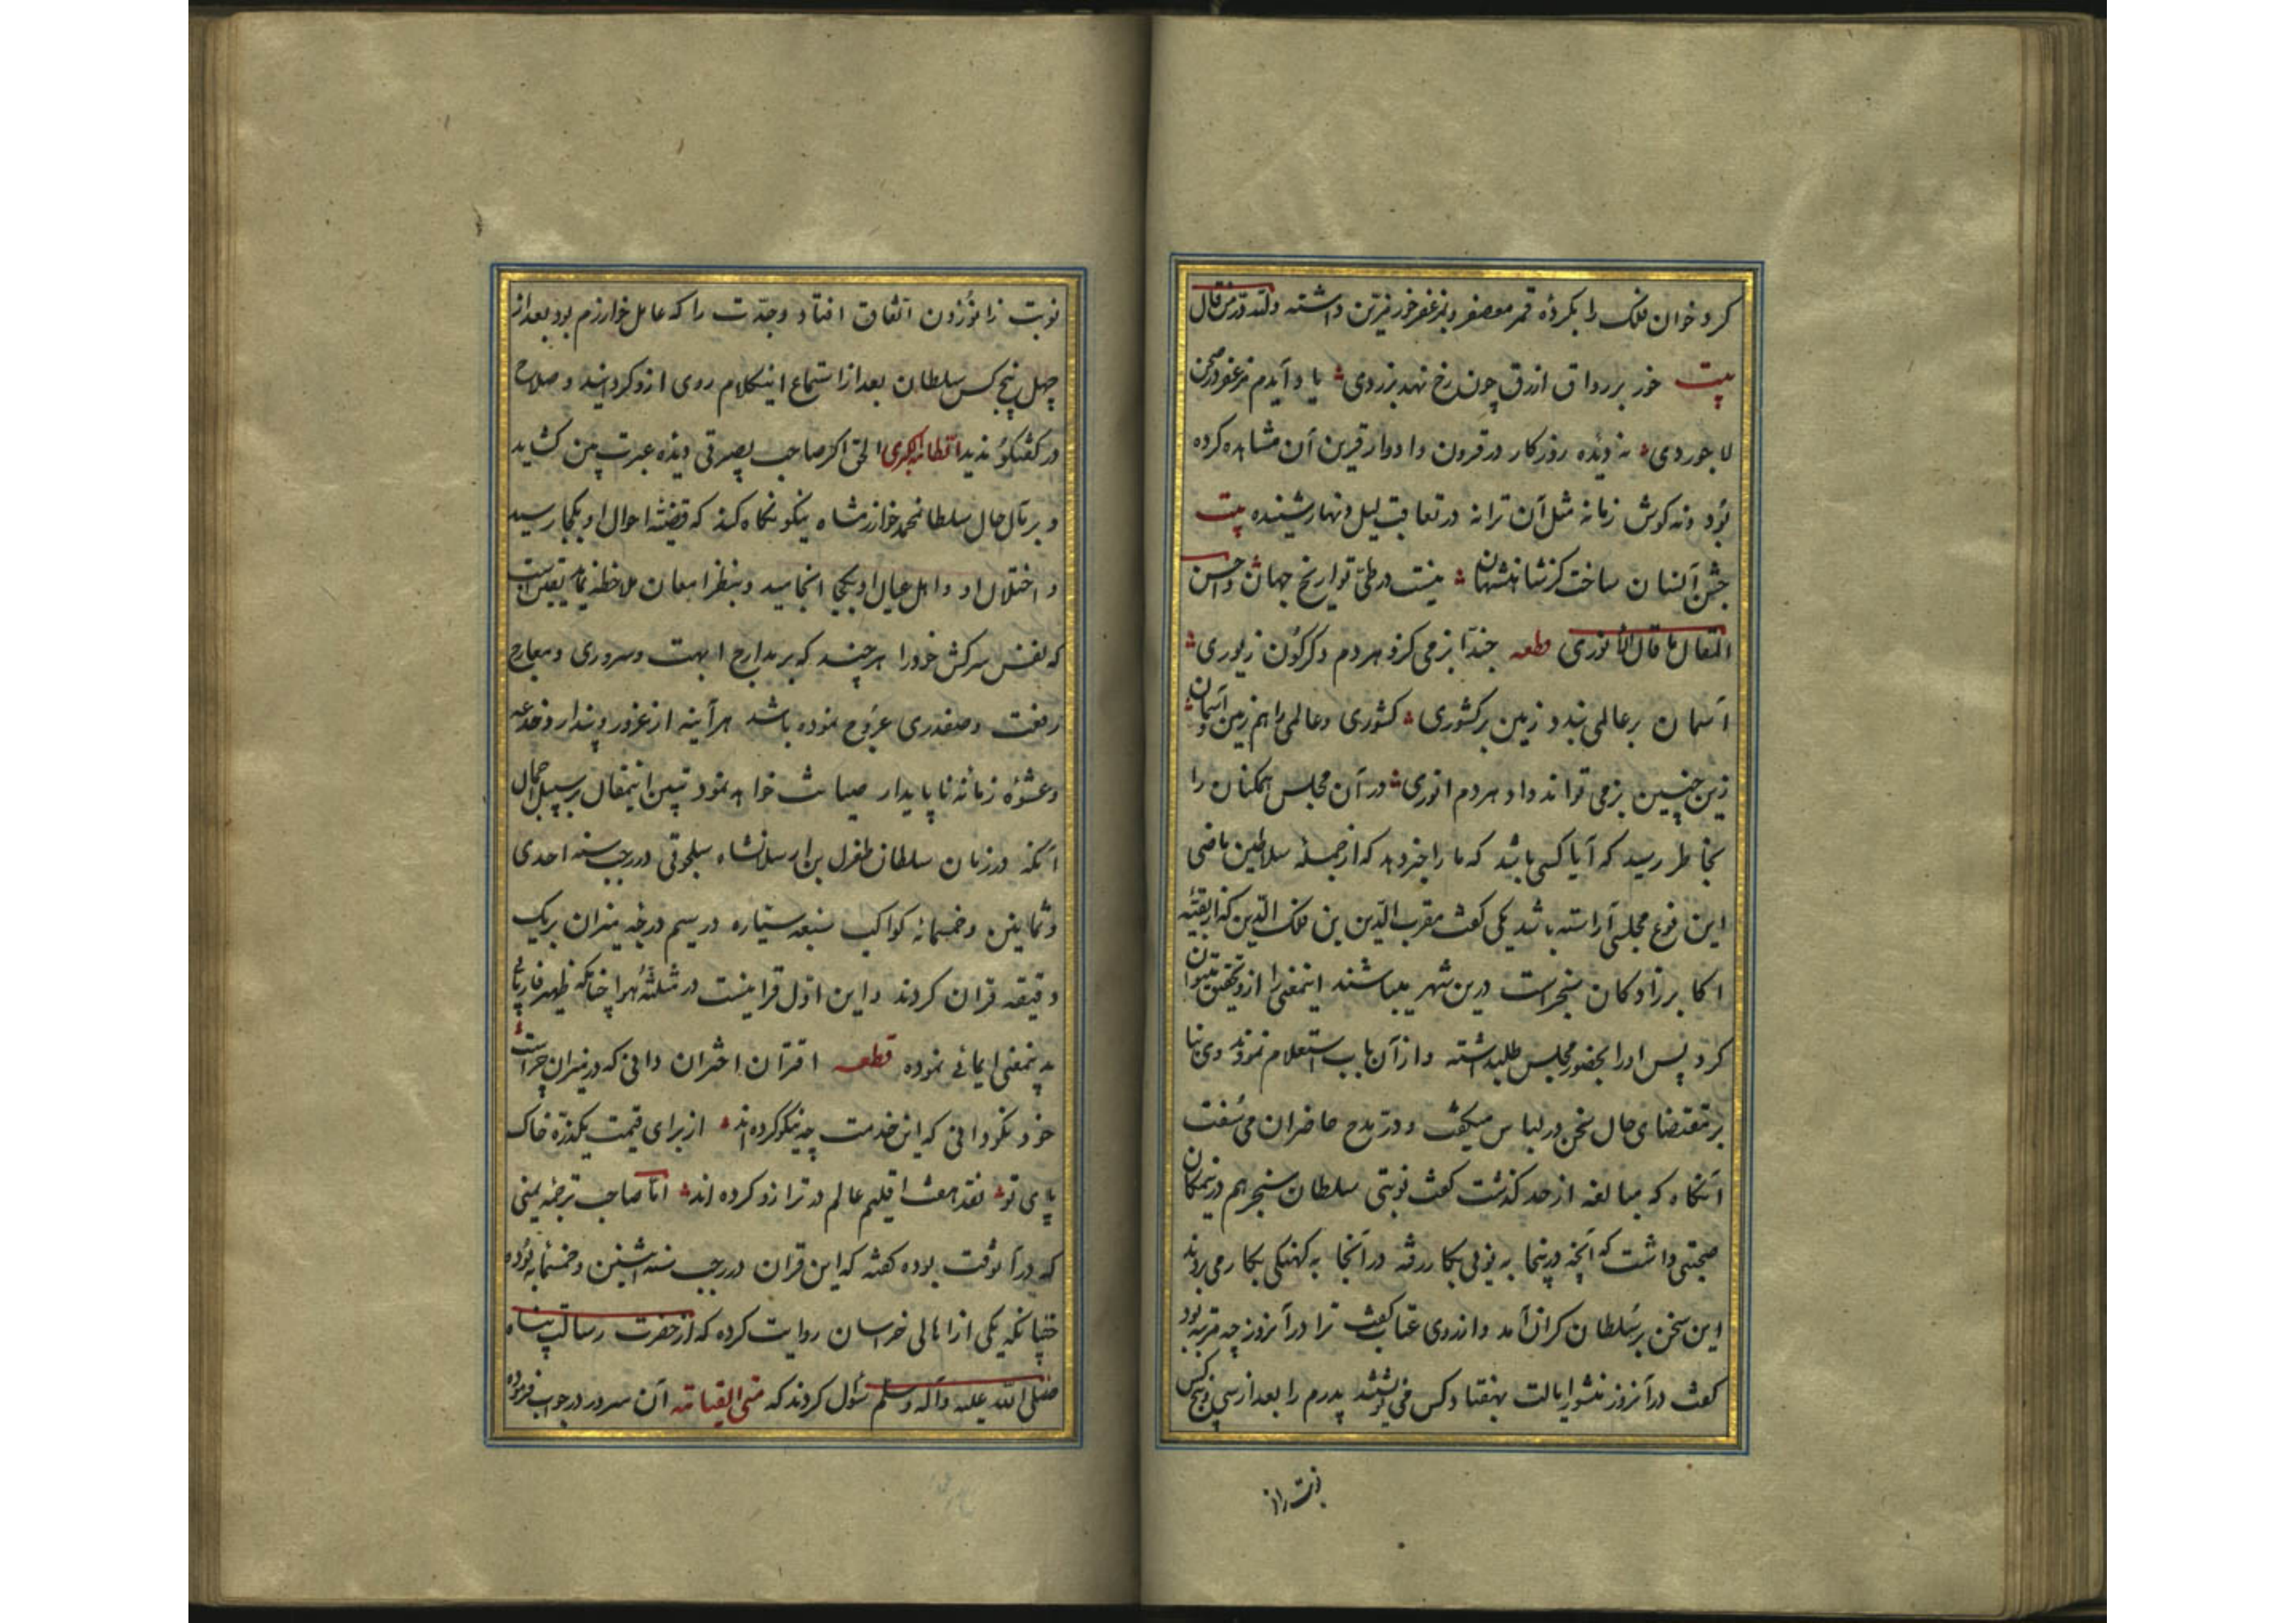 کرد خوان فلک را بکردهٔ قمر معصفر و بمزعفر خور مزین داشته ولله در من قال
بیت خور بر رواق ازرق چون رخ نهد بزردی یاد آیدم مزعفر در صحن
لاجوردی نه دیدهٔ روزکار در قرون و ادوار قرین آن مشاهده کرده
بود و نه کوش زمانه مثل آن ترانه در تعاقب لیل و نهار شنیده بیت
جشن آنسان ساخت کز شاهنشهان نیست در طی تواریخ جهان و احسن
المقال ما قال الانوری قطعه حبذا بزمی کزو هر دم دکرکون زیوری
آسمان بر عالمی بندد زمین بر کشوری کشوری و عالمی را هم زمین و آسمان
زین چنین بزمی تواند داد هر دم انوری در آن مجلس همکنان را
بخاطر رسید که آیا کسی باشد که ما را خبر دهد که از جملهٔ سلاطین ماضی
این نوع مجلسی آراسته باشد یکی کفت مقرب الدین بن فلک الدین که از بقیهٔ
اکابرزادکان سنجرست درین شهر میباشند اینمعنی را ازو تحقیق میتوان
کرد پس او را بحضور مجلس طلبداشته و از آن باب استعلام نمودند وی بنا
بر مقتضای حال سخن در لباس میکفت و در مدح حاضران می سفت
آنکاه که مبالغه از حد کذشت کفت نوبتی سلطان سنجر هم درینمکان
صحبتی داشت که آنچه درینجا به نوئی بکار رفته در آنجا به کهنکی بکار می بردند
این سخن بر سلطان کران آمد و از روی عتاب کفت ترا در آنروز چه مرتبه بود
کفت در آنروز منشور ایالت بهفتاد کس می نوشتند پدرم را بعد از سی و پنج کس
نوبت زانو زدن اتفاق افتاد و جدت را که عامل خوارزم بود بعد از
چهل پنج کس سلطان بعد از استماع اینکلام روی ازو کردانید و صلاح
در کفتکو ندید الحق اکر صاحب بصیرتی دیده عبرت بین کشاید
و بر مآل حال سلطانمحمد خوارزمشاه نیکو نکاه کند که قضیهٔ احوال او بکجا رسید
و اختلال او و اهل عیال او بکجا انجامید و بنظر امعان ملاحظه نماید یقین است
که نفس سرکش خود را هر چند که بر مدارج ابهت و سروری و معارج
رفعت و صفدری عروج نموده باشد هر آینه از غرور و پندار و خدعه
و عشوهٔ زمانه ناپایدار صیانت خواهد نمود تبیین اینمقال بر سبیل اجمال
آنکه در زمان سلطان طغرل بن ارسلانشاه سلجوقی در رجب سنه احدی
و ثمانین و خمسمائه کواکب سبعه سیاره در سیم درجه میزان بریک
دقیقه قران کردند و این اول قرانیست در مثلثهٔ هوا چنانکه ظهیر فاریابی
بدینمعنی ایمائی نموده قطعه اقتران اختران دانی که در میزان چراست
خود نکو دانی که این خدمت چه نیکو کرده اند از برای قیمت یکذره خاک
پای تو نقد هفت اقلیم عالم در ترازو کرده اند اما صاحب ترجمهٔ یمینی
که در آنوقت بوده کفته که این قران در رجب سنه اثنین و خمسمائه بوده
چنانکه یکی از اهالی خراسان روایت کرده که از حضرت رسالت پناه
صلی الله علیه و آله و سلم سؤال کردند که متی القیامه آن سرور در جواب فرموده
نوبت زانو